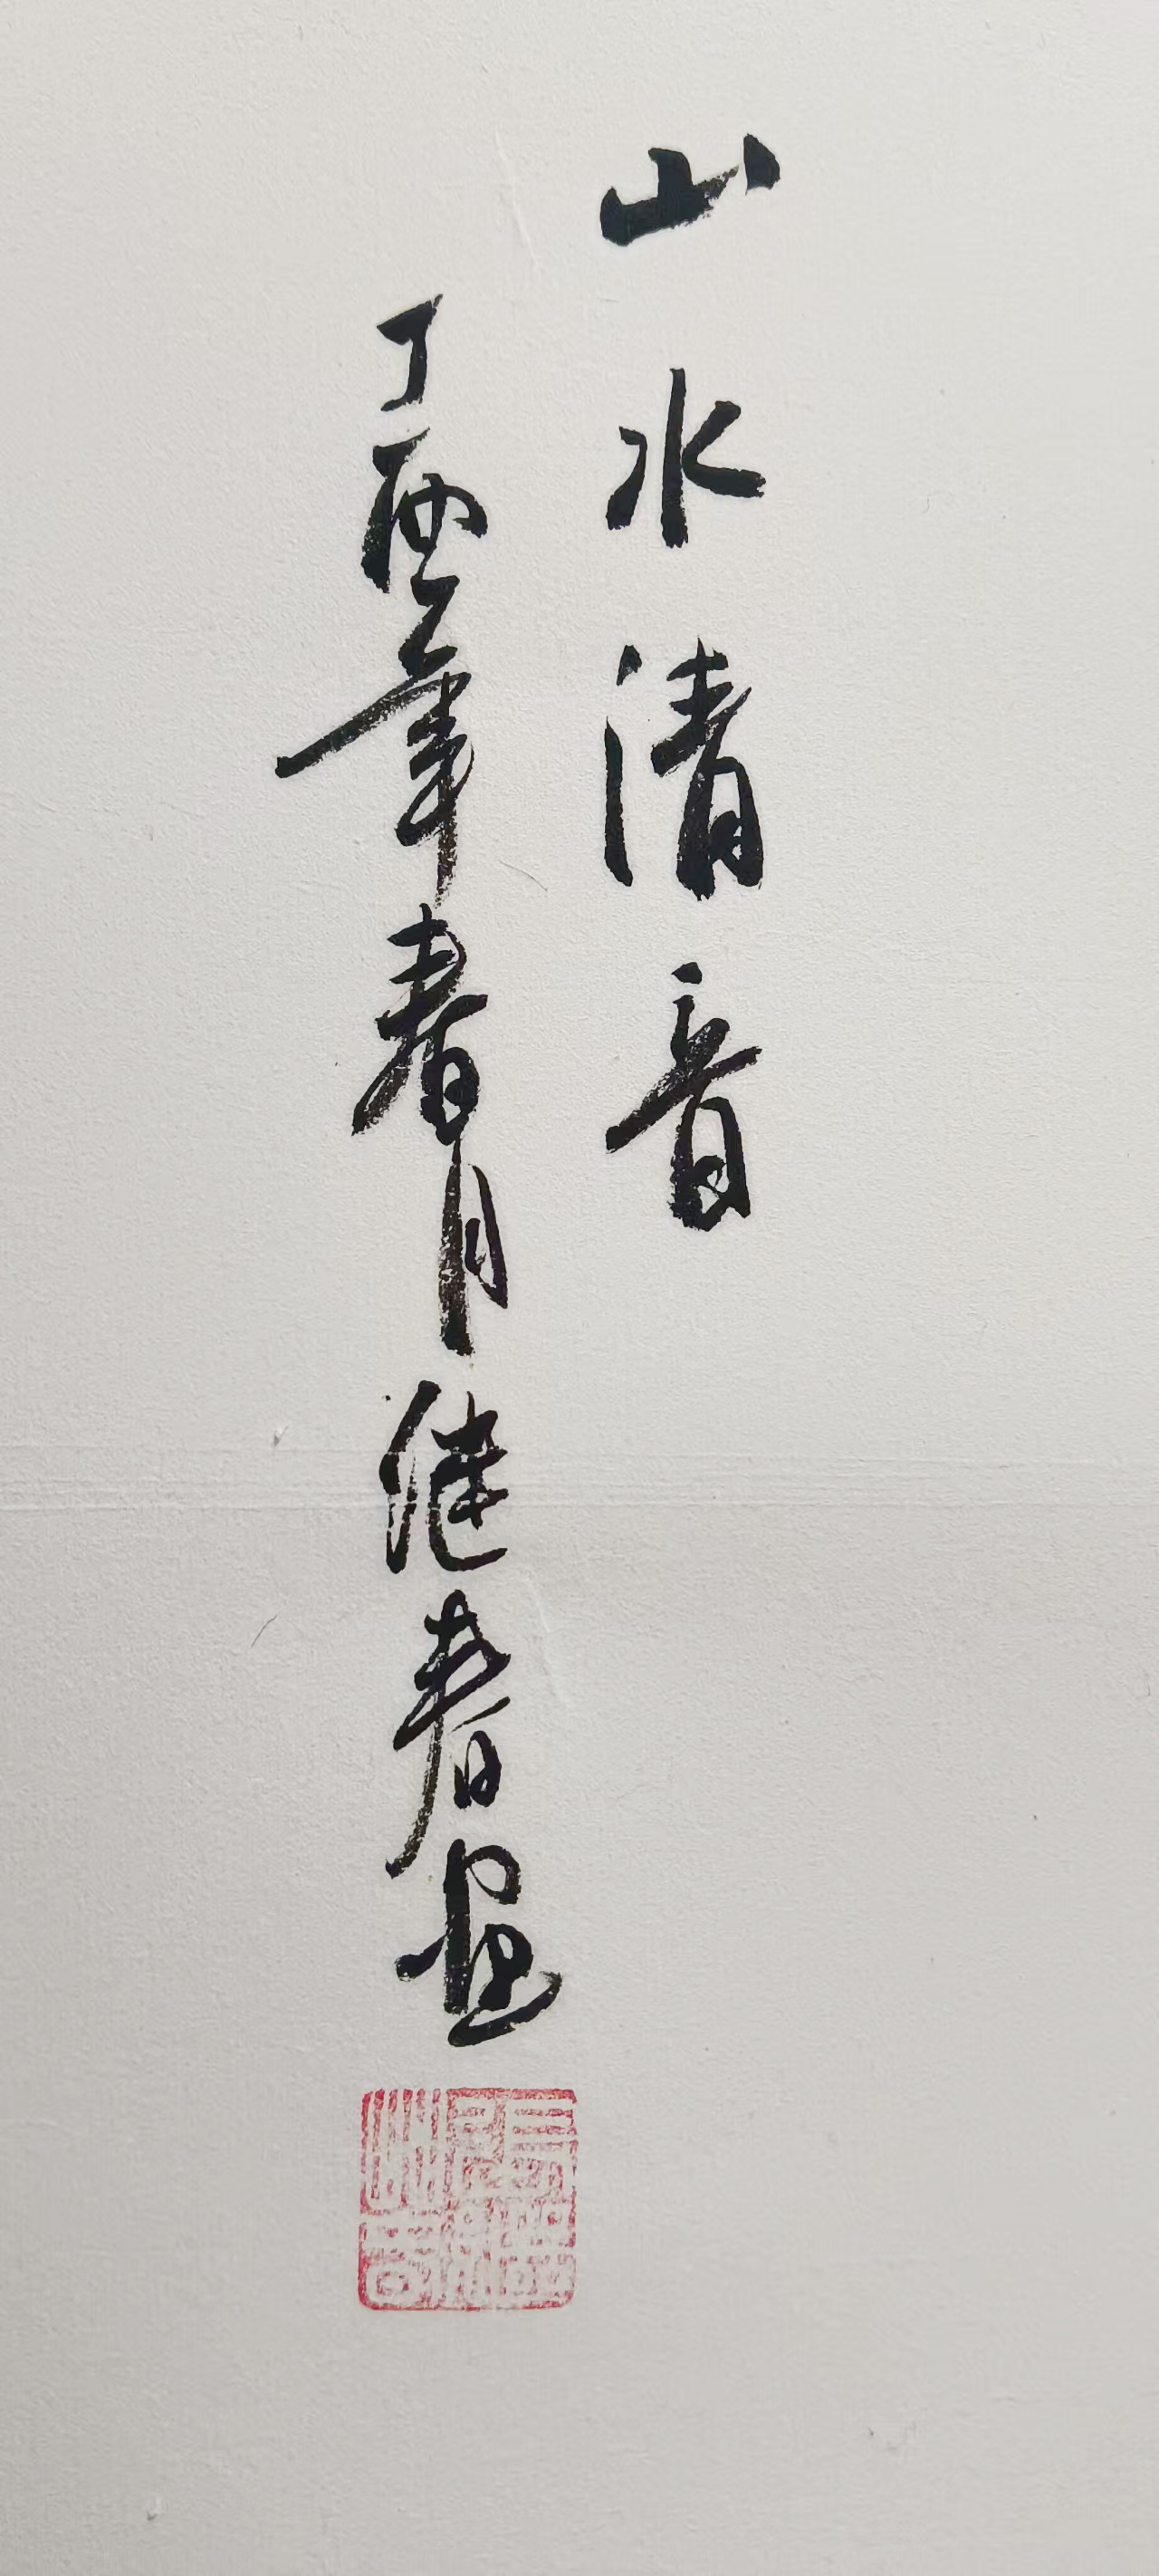 山水清音
丁酉年春月继春画